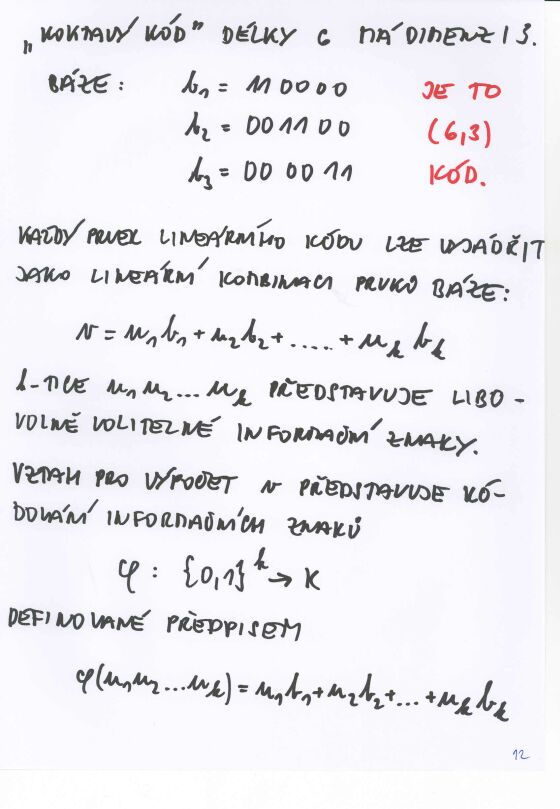 „KOKTAVÝ KÓD" DÉLKY 6 MÁ DIMENZI 3.
BÁZE: b₁ = 110000 JE TO
b₂ = 001100 (6,3)
b₃ = 000011 KÓD.
KAŽDÝ PRVEK LINEÁRNÍHO KÓDU LZE VYJÁDŘIT
JAKO LINEÁRNÍ KOMBINACI PRVKŮ BÁZE:
v = u₁b₁ + u₂b₂ + ..... + uₖ bₖ
k-TICE u₁u₂...uₖ PŘEDSTAVUJE LIBO-
VOLNĚ VOLITELNÉ INFORMAČNÍ ZNAKY.
VZTAH PRO VÝPOČET v PŘEDSTAVUJE KÓ-
DOVÁNÍ INFORMAČNÍCH ZNAKŮ
φ : {0,1}ᵏ → K
DEFINOVANÉ PŘEDPISEM
φ(u₁u₂...uₖ) = u₁b₁+u₂b₂+...+uₖbₖ
12